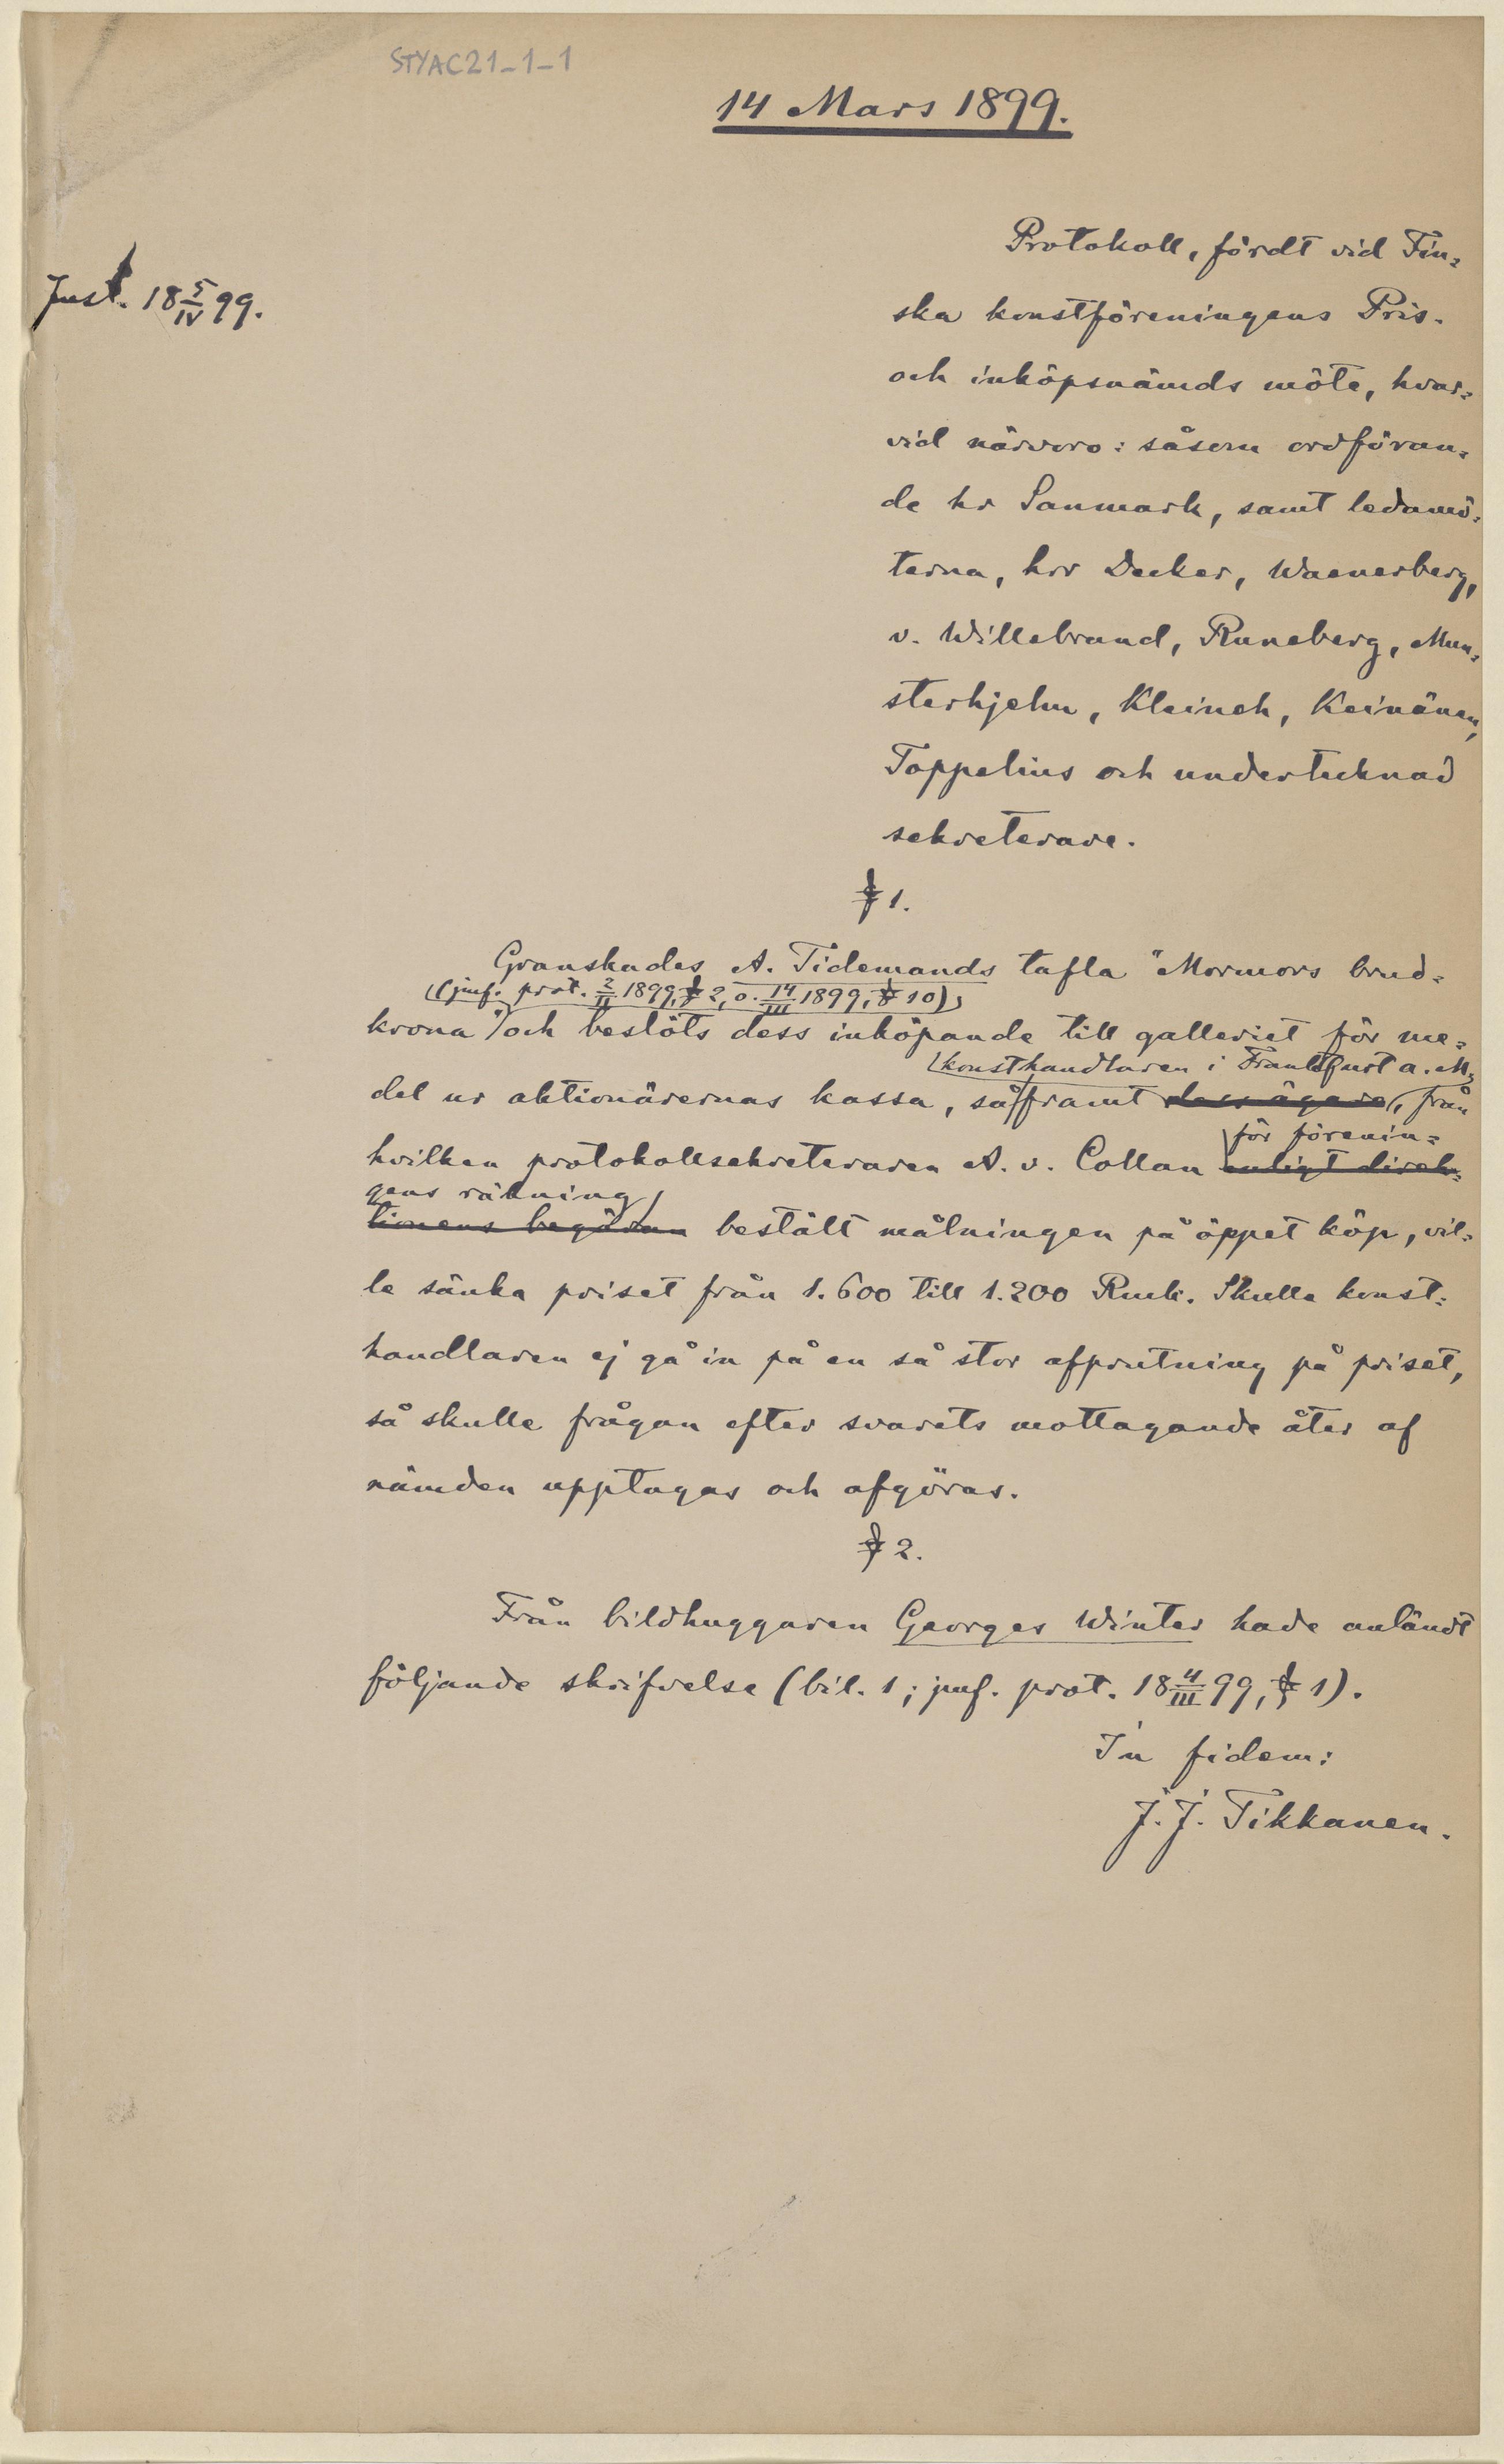 STYAC21-1-1
14 Mars 1899.
Just. 18 5/IV 99.
Protokoll, fördt vid Fin-
ska konstföreningens Pris-
och inköpsnämds möte, hvar-
vid närvoro: såsom ordföran-
de hr Sanmark, samt ledamö-
terna, hrr Decker, Waenerberg,
v. Willebrand, Runeberg, Mun-
sterhjelm, Kleineh, Keinänen,
Toppelius och undertecknad
sekreterare.
§ 1.
Granskades A. Tidemands tafla "Mormors brud-
(jmf. prot. 2/II 1899, § 2, o. 14/III 1899, § 10),
krona" och beslöts dess inköpande till galleriet för me-
konsthandlaren i Frankfurt a. M.
del ur aktionärernas kassa, såframt dess ägare, från
för förenin-
hvilken protokollsekreteraren A. v. Collan enligt direk-
gens räkning
tionens begäran bestält målningen på öppet köp, vil-
le sänka priset från 1.600 till 1.200 Rmk. Skulle konst-
handlaren ej gå in på en så stor afprutning på priset,
så skulle frågan efter svarets mottagande åter af
nämden upptagas och afgöras.
§ 2.
Från bildhuggaren Georges Winter hade anländt
följande skrifvelse (bil. 1; jmf. prot. 18 4/III 99, § 1).
In fidem:
J. J. Tikkanen.